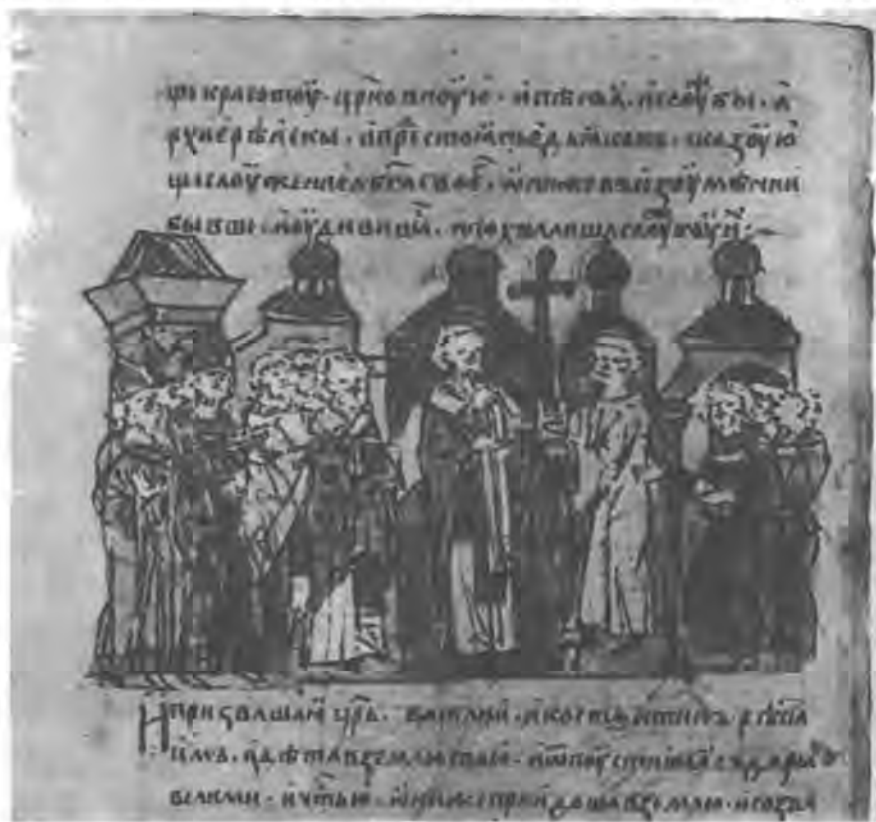 щи красотоу · црк҃овноую · и пѣниа · и слоуⷤбы · а
рхиерѣискы · и прⷭ҇стоаньє дьаконъ · сказоую
щи слоужение б҃га своеⷢ · ѡни же въ изоумѣнии
бывши · и оудивишⷭ · и похвалиша слоуⷤбоу иⷯ :~
И призваша и цр҃ь · василии · и костантинъ рѣста
имъ · идѣта в землю свою · и ѿпоустиша а с дары
велики · и чⷭтью · ѡни же приидоша в землю · и созва